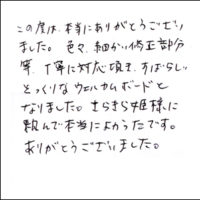 この度は、本当にありがとうござい
ました。色々、細かい修正部分
等、丁寧に対応頂き、すばらしい
そっくりなウェルカムボードと
なりました。きらきら姫様に
頼んで本当によかったです。
ありがとうございました。